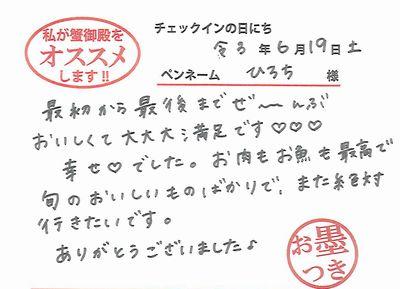 私が蟹御殿を
オススメ
します!!
チェックインの日にち
令3年6月19日土
ペンネーム ひろち 様
最初から最後までぜ〜んぶ
おいしくて大大大満足です♡♡♡
幸せ♡でした。お肉もお魚も最高で
旬のおいしいものばかりで、また絶対
行きたいです。
ありがとうございました♪
お墨
つき